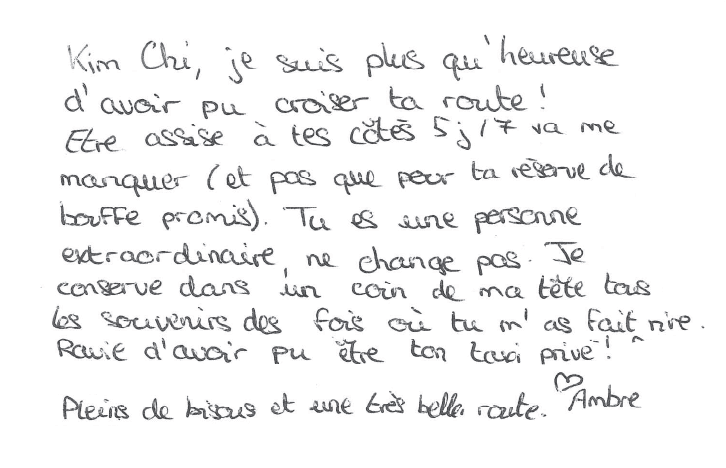 Kim Chi, je suis plus qu'heureuse
d'avoir pu croiser ta route !
Etre assise à tes côtés 5j/7 va me
manquer (et pas que pour ta réserve de
bouffe promis). Tu es une personne
extraordinaire, ne change pas. Je
conserve dans un coin de ma tête tous
les souvenirs des fois où tu m'as fait rire.
Ravie d'avoir pu être ton taxi privé ! ^
Pleins de bisous et une très belle route. ♡ Ambre